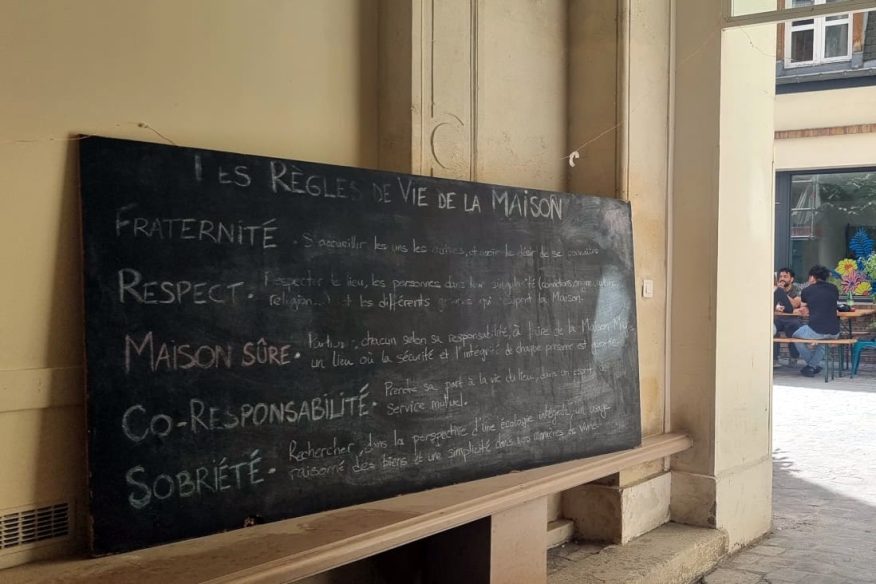 Les Règles de Vie de la Maison
Fraternité. S'accueillir les uns les autres, et avoir le désir de se connaître
Respect. Respecter le lieu, les personnes dans leur singularité (convictions, origine, culture,
religion...) et les différents groupes qui occupent la Maison.
Maison sûre. chacun selon sa responsabilité, à faire de la Maison
un lieu où la sécurité et l'intégrité de chaque personne est
Co-Responsabilité. Prendre sa part à la vie du lieu, dans un esprit de
service mutuel.
Sobriété. Rechercher, dans la perspective d'une écologie intégrale, un usage
raisonné des biens et une simplicité dans nos manières de vivre.